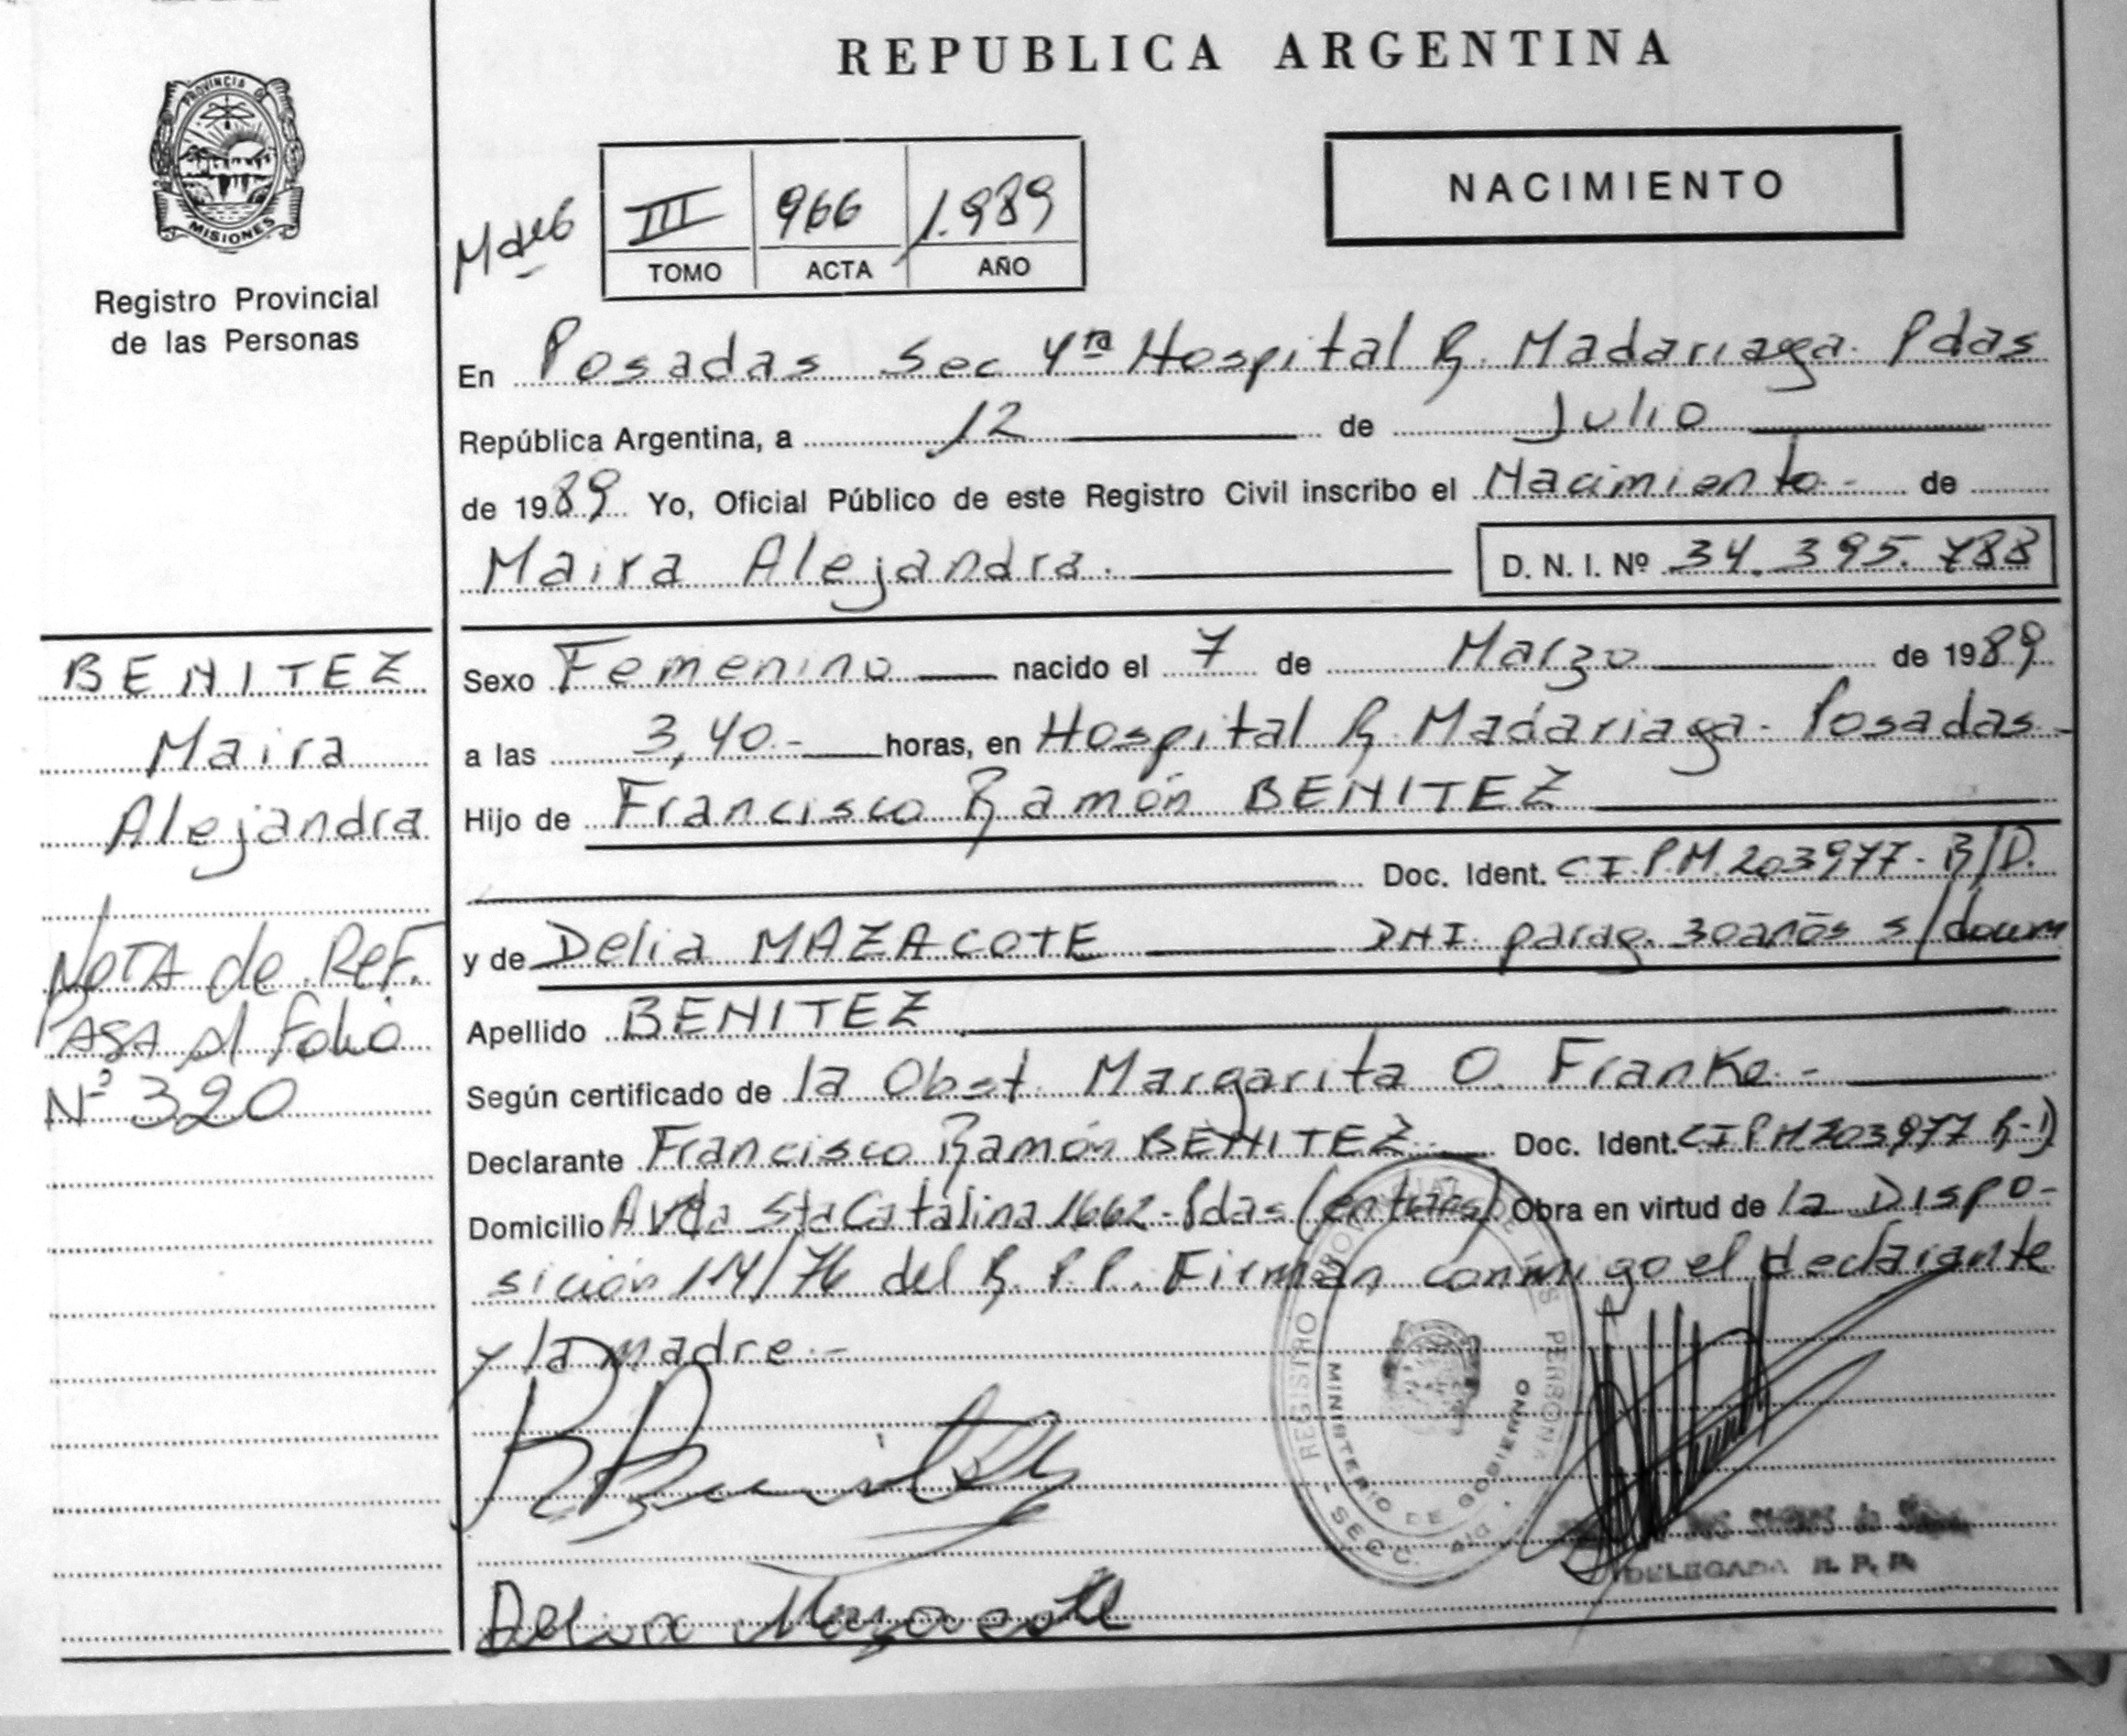 PROVINCIA DE
MISIONES
Registro Provincial
de las Personas
BENITEZ
Maira
Alejandra
NOTA de Ref.
PASA al Folio
Nº 320
REPUBLICA ARGENTINA
NACIMIENTO
III 966 1.989
TOMO ACTA AÑO
En Posadas Sec 4ta Hospital R. Madariaga. Pdas
República Argentina, a 12 de Julio
de 1989 Yo, Oficial Público de este Registro Civil inscribo el Nacimiento - de
Maira Alejandra. D. N. I. Nº 34.395.788
Sexo Femenino nacido el 7 de Marzo de 1989
a las 3,40.- horas, en Hospital R. Madariaga - Posadas -
Hijo de Francisco Ramón BENITEZ
Doc. Ident. C.I.P.M. 203977 - R/D.
y de Delia MAZACOTE DNI parag. 30 anõs s/docum
Apellido BENITEZ
Según certificado de la Obst. Margarita O. Franke.-
Declarante Francisco Ramón BENITEZ Doc. Ident. CIPM 203,977 R-D
Domicilio Avda Sta Catalina 1662 - Pdas Obra en virtud de la Dispo-
sición 14/76 del R. P. P. Firman conmigo el declarante
y la madre.-
REGISTRO PROVINCIAL DE LAS PERSONAS
MINISTERIO DE GOBIERNO
SECC. 4ta
Delia Mazacote
DELEGADA R. P. P.